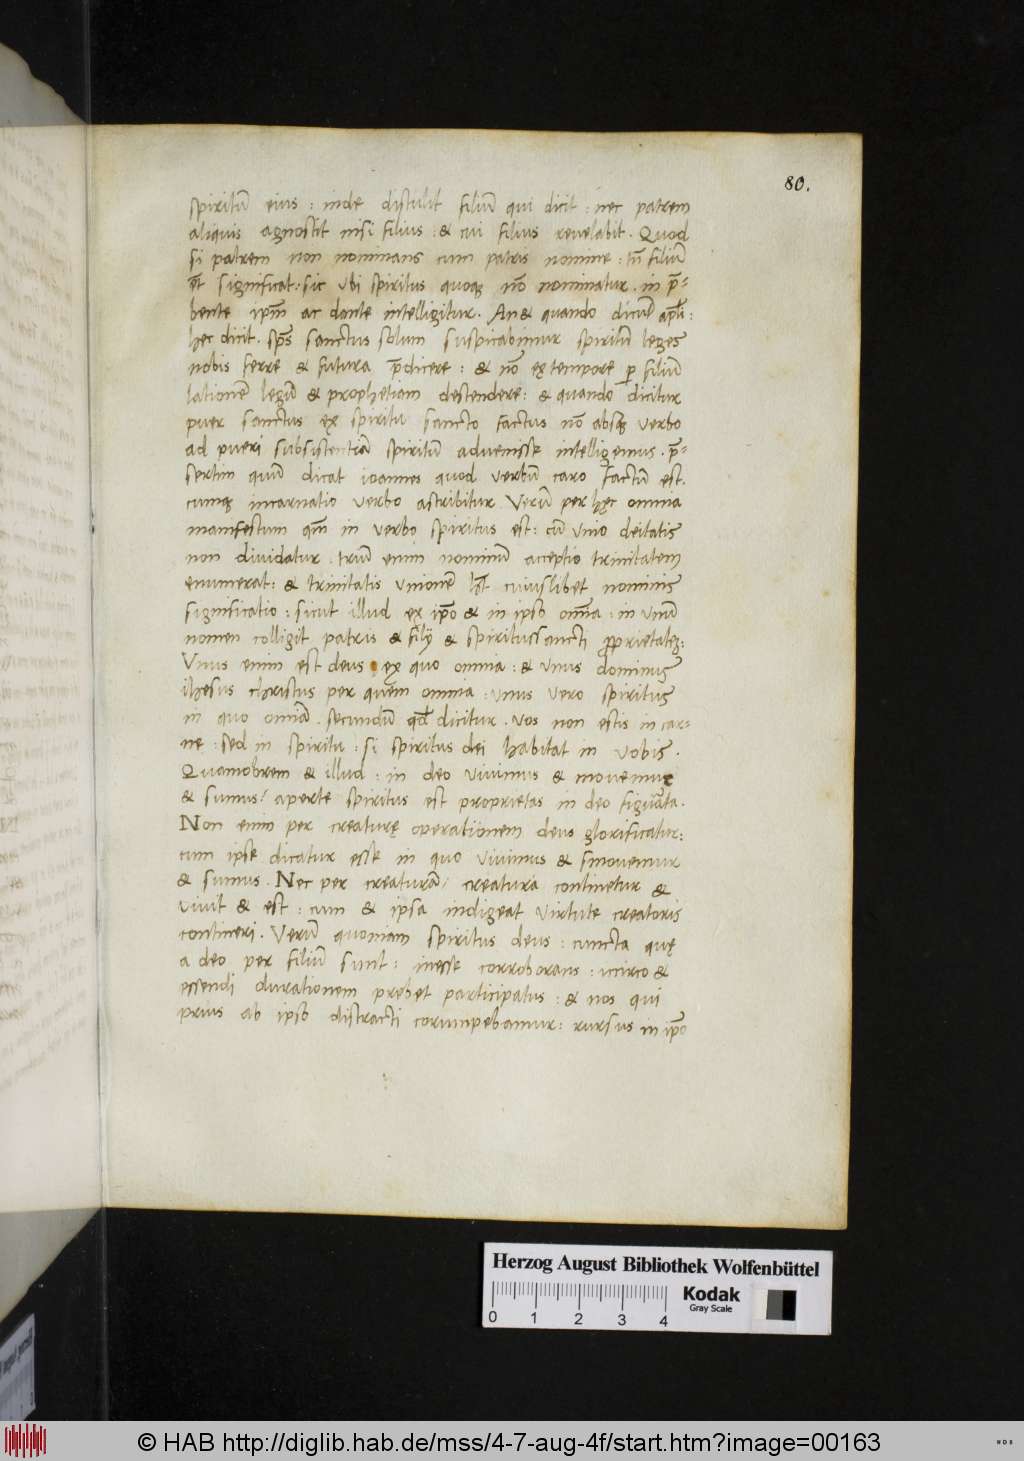 80.
spiritū eius : inde distulit filiū qui dicit : nec patrem
aliquis agnoscit nisi filius : & cui filius reuelabit . Quod
si patrem non nominans cum patris nomine : tñ filiū
significat : sic vbi spiritus quoqz nō nominatur . in p̄-
bente ipm̄ ac dante intelligitur . An & quando dicūt :
hec dicit . sp̄s sanctus solum suspicabimur spiritū leges
nobis ferre & futura p̄dicere : & nō ex tempore p filiū
lationē legū & prophetiam descendere : & quando dicitur
puer sanctus ex spiritu sancto factus nō absqz verbo
ad pueri subsistentiā spiritū aduenisse intelligemus . p̄-
sertim quū dicat ioannes quod verbū caro factū est.
cumqz incarnatio verbo astribitur Verū per hęc omnia
manifestum qm̄ in verbo spiritus est : cū vnio deitatis
non diuidatur . triū enim nominū acceptio trinitatem
enumerat : & trinitatis vnionē hēt cuiuslibet nominis
significatio : sicut illud ex ip̄o & in ipso om̄ia : in vnū
nomen colligit patris & filij & spiritussancti proprietatē :
Vnus enim est deus ex quo omnia : & vnus dominus
ihesus christus per quem omnia : vnus vero spiritus
in quo omīa . secundū qđ dicitur . vos non estis in car-
ne : sed in spiritu : si spiritus dei habitat in vobis .
Quamobrem & illud : in deo viuimus & mouemur
& sumus / aperte spiritus est proprietas in deo figurata .
Non enim per creaturę operationem deus glorificatur :
cum ipse dicatur esse in quo viuimus & smouemur
& sumus . Nec per creaturā / creatura continetur &
viuit & est : cum & ipsa indigeat virtute creatoris
contineri . Verū quoniam spiritus deus : cuncta quę
a deo per filiū sunt : inesse corroborans : iccirco &
essendi durationem prębet participatus : & nos qui
prius ab ipso distracti corrumpebamur : rursus in ip̄o
Herzog August Bibliothek Wolfenbüttel
Kodak
Gray Scale
0 1 2 3 4
© HAB http://diglib.hab.de/mss/4-7-aug-4f/start.htm?image=00163